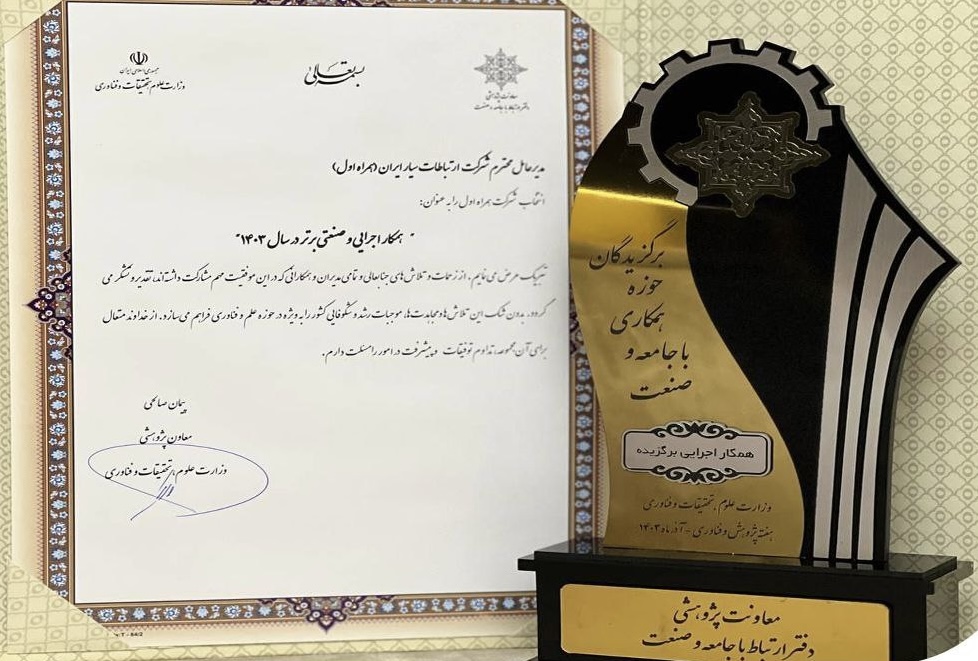 جمهوری اسلامی ایران
وزارت علوم، تحقیقات و فناوری
بسمه تعالی
معاونت پژوهشی
دفتر ارتباط با جامعه و صنعت
مدیرعامل محترم شرکت ارتباطات سیار ایران (همراه اول)
انتخاب شرکت همراه اول را به عنوان:
"همکار اجرایی و صنعتی برتر در سال ۱۴۰۳"
تبریک عرض می نمایم. از زحمات و تلاش های جنابعالی و تمامی مدیران و همکارانی که در این موفقیت مهم مشارکت داشته اند، تقدیر و تشکر می
گردد. بدون شک این تلاش ها و مجاهدت ها، موجبات رشد و شکوفایی کشور را به ویژه در حوزه علم و فناوری فراهم می سازد. از خداوند متعال
برای آن مجموعه، تداوم توفیقات و پیشرفت در امور را مسئلت دارم.
پیمان صالحی
معاون پژوهشی
وزارت علوم، تحقیقات و فناوری
برگزیدگان
حوزه
همکاری
با جامعه و
صنعت
همکار اجرایی برگزیده
وزارت علوم، تحقیقات و فناوری
هفته پژوهش و فناوری - آذر ماه ۱۴۰۳
معاونت پژوهشی
دفتر ارتباط با جامعه و صنعت